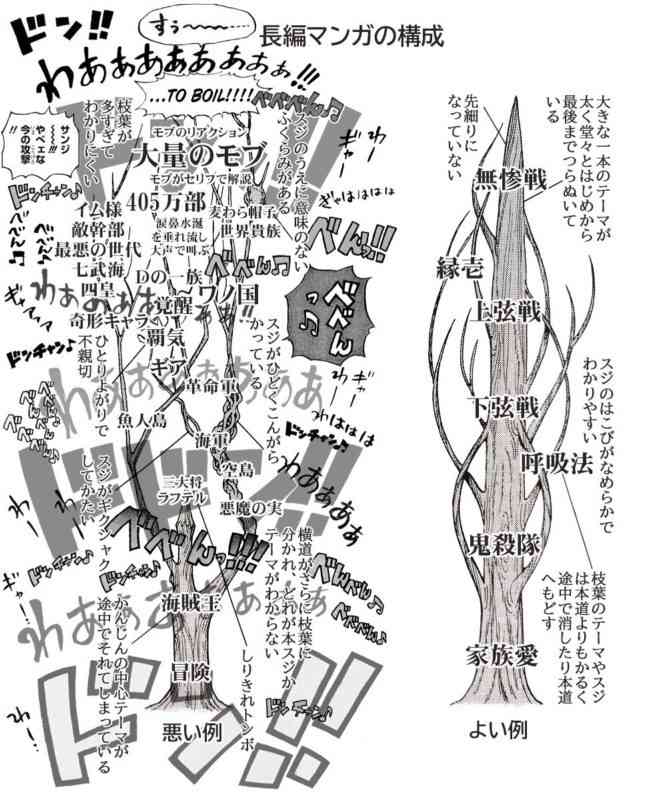 長編マンガの構成
ドン!!
すぅ〜〜〜…
わあぁああぁあぁぁ!!!
...TO BOIL!!!!
べべべん♪
サンジ
やべェな
今の攻撃
!!
枝葉が
多すぎて
わかりにくい
モブのリアクション
大量のモブ
モブがセリフで解説
405万部
涙鼻水涎
を垂れ流し
大声で叫ぶ
麦わら帽子
世界貴族
スジのうえに意味のない
ふくらみがある
ぎゃー
わー
ぎゃははははは
べんっ!!
ドンチャン♪
イム様
敵幹部
最悪の世代
七武海
四皇
奇形キャラ
Dの一族
覚醒
ワノ国
覇気
ギア
革命軍
魚人島
海軍
空島
三大将
ラフテル
悪魔の実
スジがひどくこんがら
かっている
ひとりよがりで
不親切
スジがギクシャク
してかたい
わははは
ドンチャン♪
わあぁぁぁぁ
べべべんっ!!!
横道がさらに枝葉に
分かれ、どれが本スジか
テーマがわからない
海賊王
冒険
かんじんの中心テーマが
途中でそれてしまっている
しりきれトンボ
べんべん♪
べべべん♪
ドンチャン♪
ドン!!
悪い例
先細りに
なっていない
大きな一本のテーマが
太く堂々とはじめから
最後までつらぬいて
いる
無惨戦
縁壱
上弦戦
下弦戦
呼吸法
鬼殺隊
家族愛
スジのはこびがなめらかで
わかりやすい
枝葉のテーマやスジ
は本道よりもかるく
途中で消したり本道
へもどす
よい例